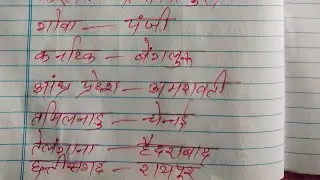 गोवा — पंजी
कर्नाटक — बेंगलुरू
आंध्र प्रदेश — अमरावती
तमिलनाडु — चेन्नई
तेलंगाना — हैदराबाद
छत्तीसगढ — रायपुर